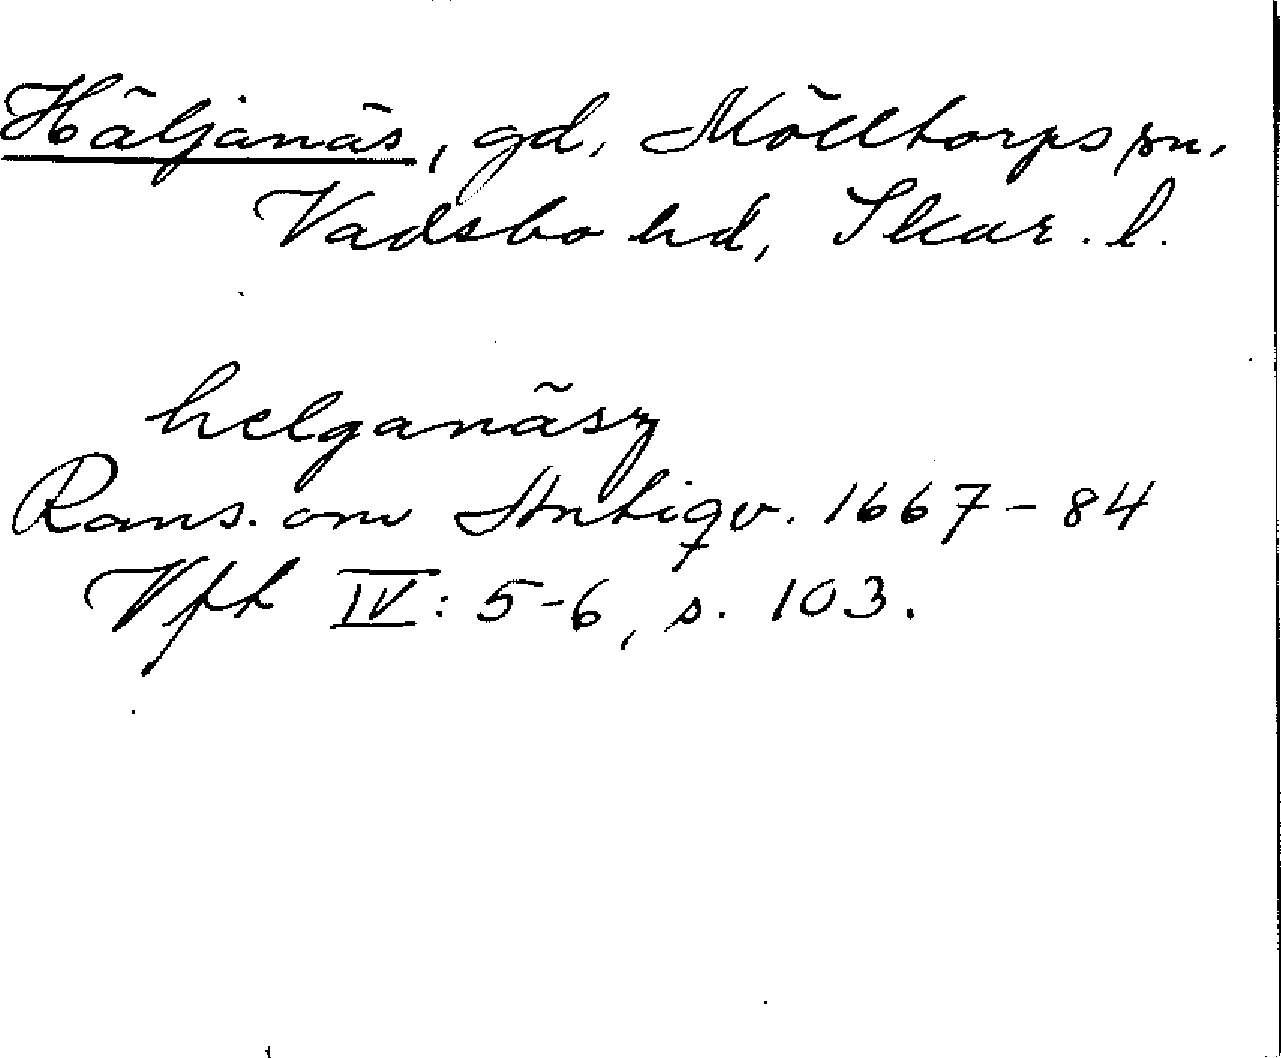 Häljanäs, gd, Mölltorps sn.
Vadsbo hd, Skar. l.
helganäsz
Rans. om Antiqv. 1667-84
Vfth IV: 5-6, s. 103.